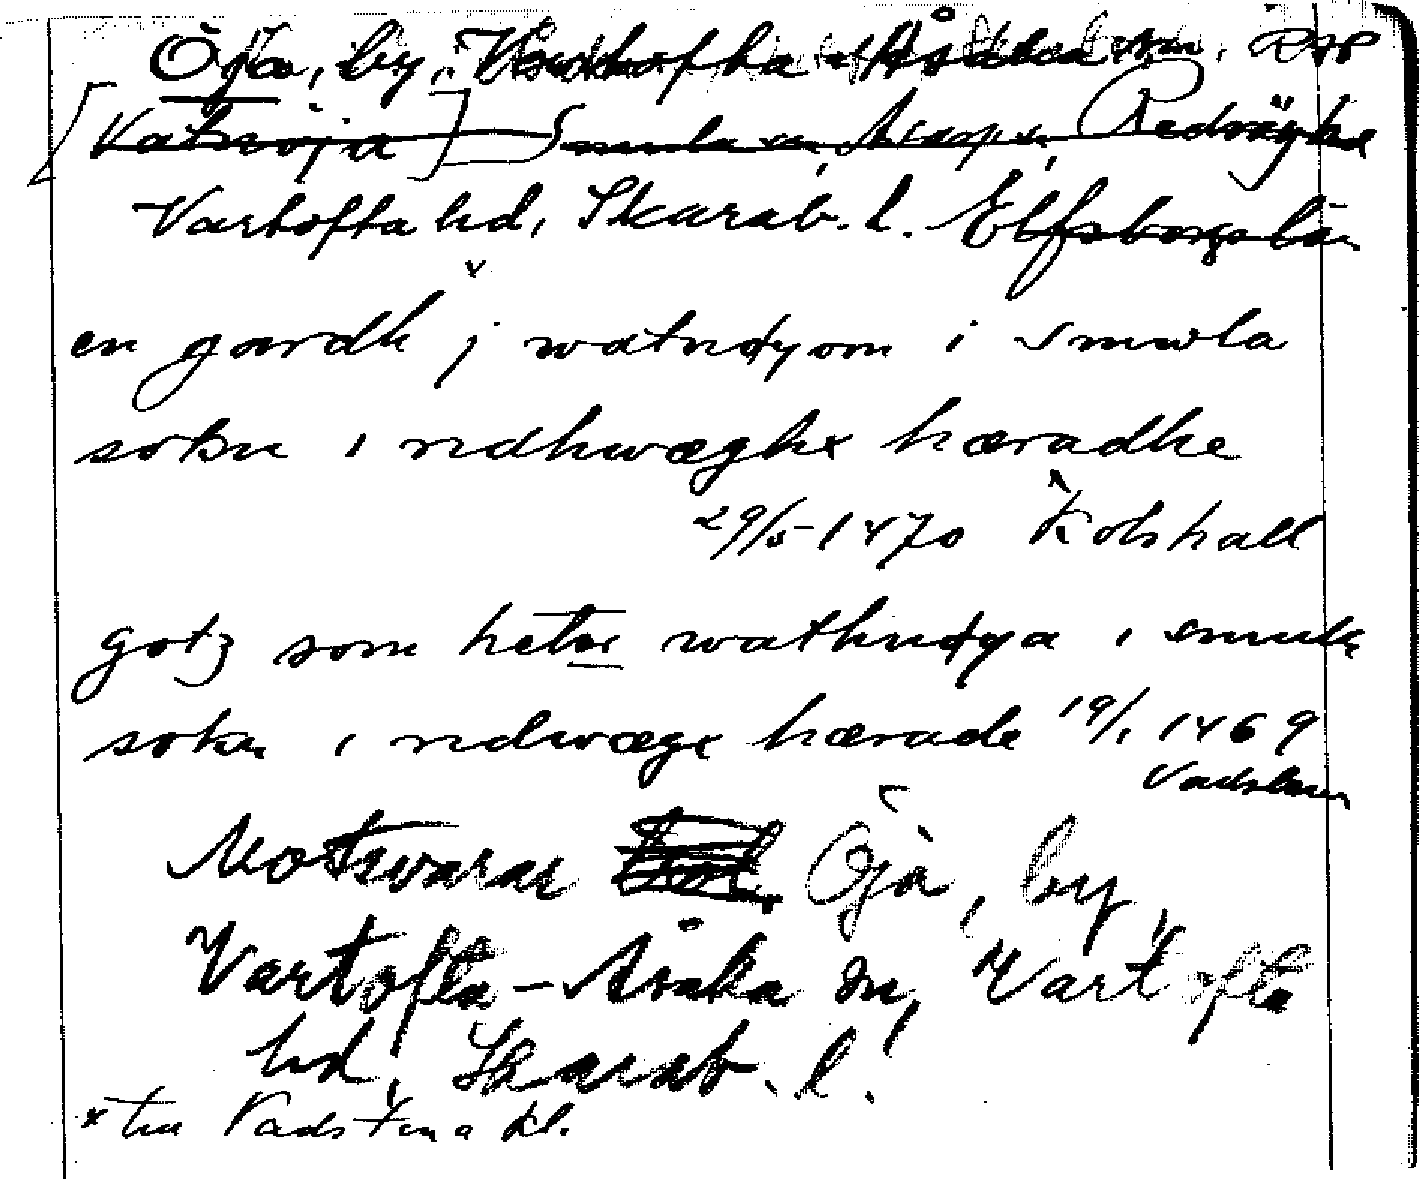 Öja, by, Vartofta-Åsaka sn. RAP
[Vatnöja] Smula sn, Redvägs hd
Vartofta hd, Skarab. l. Elfsborgs län
en gardh j watnøyom i smwla
sokn i redhwæghx hæradhe
29/5 1470 Kolshall
gotz som hetæ wathnøya i smula
sokn i redwægx hærade 19/1 1469
Vadstena
Motsvarar Öja, by,
Vartofta-Åsaka sn, Vartofta
hd, Skarab. l.
x till Vadstena kl.